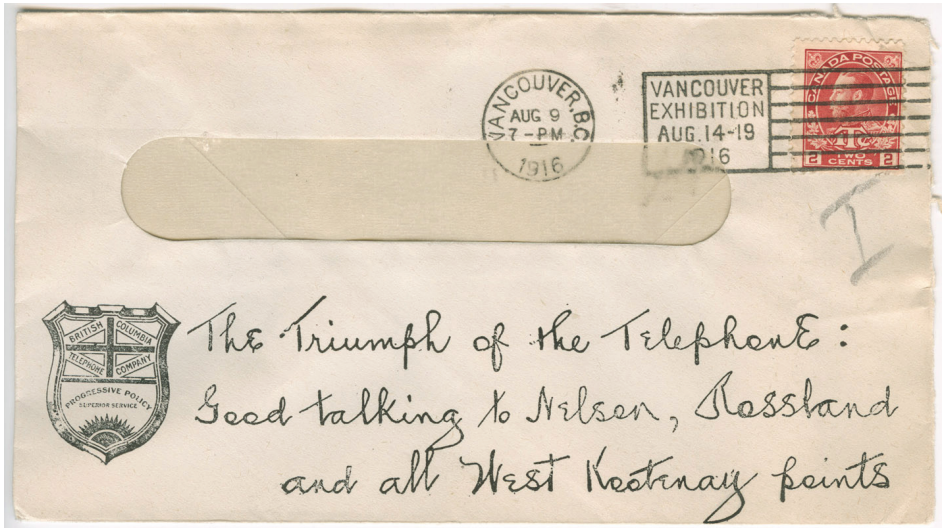 VANCOUVER, B.C.
AUG 9
7-PM
1916
VANCOUVER
EXHIBITION
AUG. 14-19
1916
CANADA POSTAGE
2 TWO CENTS 2
I
BRITISH COLUMBIA
TELEPHONE COMPANY
PROGRESSIVE POLICY
SUPERIOR SERVICE
The Triumph of the Telephone:
Good talking to Nelson, Rossland
and all West Kootenay points